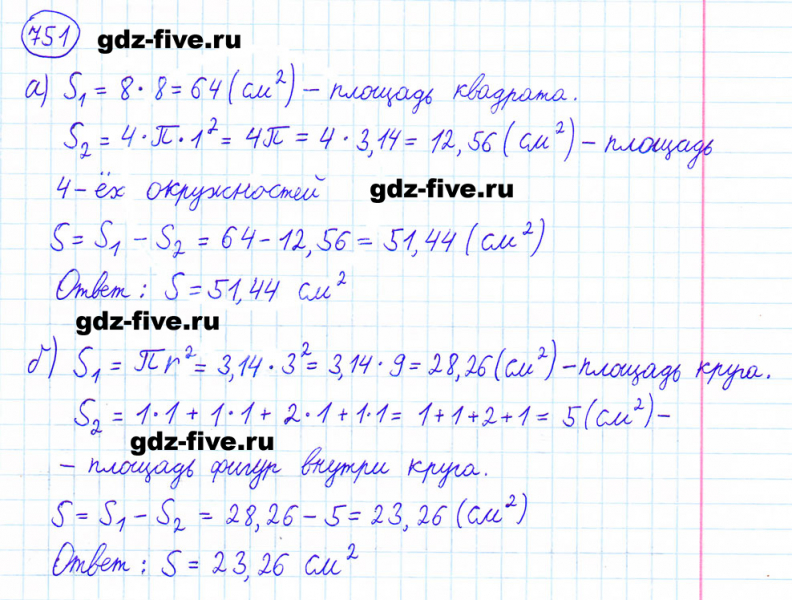 751 gdz-five.ru
а) S₁ = 8 · 8 = 64 (см²) – площадь квадрата.
S₂ = 4 · π · 1² = 4π = 4 · 3,14 = 12,56 (см²) – площадь
4-ёх окружностей gdz-five.ru
S = S₁ – S₂ = 64 – 12,56 = 51,44 (см²)
Ответ: S = 51,44 см²
gdz-five.ru
б) S₁ = πr² = 3,14 · 3² = 3,14 · 9 = 28,26 (см²) – площадь круга.
S₂ = 1·1 + 1·1 + 2·1 + 1·1 = 1+1+2+1 = 5 (см²) –
gdz-five.ru
– площадь фигур внутри круга.
S = S₁ – S₂ = 28,26 – 5 = 23,26 (см²)
Ответ: S = 23,26 см²